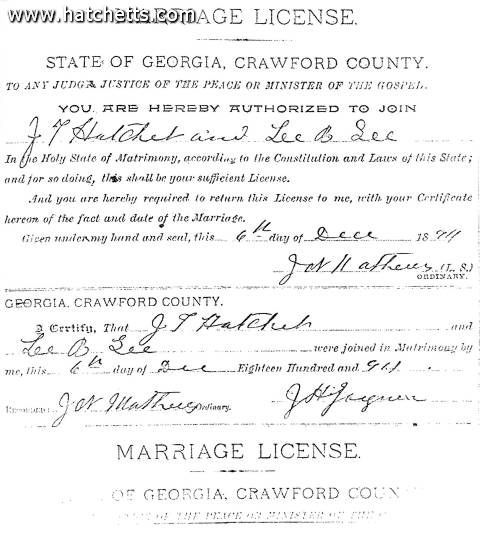 www.hatchetts.com
MARRIAGE LICENSE.
STATE OF GEORGIA, CRAWFORD COUNTY.
TO ANY JUDGE, JUSTICE OF THE PEACE OR MINISTER OF THE GOSPEL.
YOU ARE HEREBY AUTHORIZED TO JOIN
J T Hatchet and Lee B Lee
In the Holy State of Matrimony, according to the Constitution and Laws of this State;
and for so doing, this shall be your sufficient License.
And you are hereby required to return this License to me, with your Certificate
hereon of the fact and date of the Marriage.
Given under my hand and seal, this 6th day of Dec 1894
J N Mathews (L. S.)
ORDINARY.
GEORGIA, CRAWFORD COUNTY.
I Certify, That J T Hatchet and
Lee B Lee were joined in Matrimony by
me, this 6th day of Dec Eighteen Hundred and 94.
Recorded J N Mathews Ordinary. J H
MARRIAGE LICENSE.
OF GEORGIA, CRAWFORD COUN
OF THE PEACE OR MINISTER OF THE G